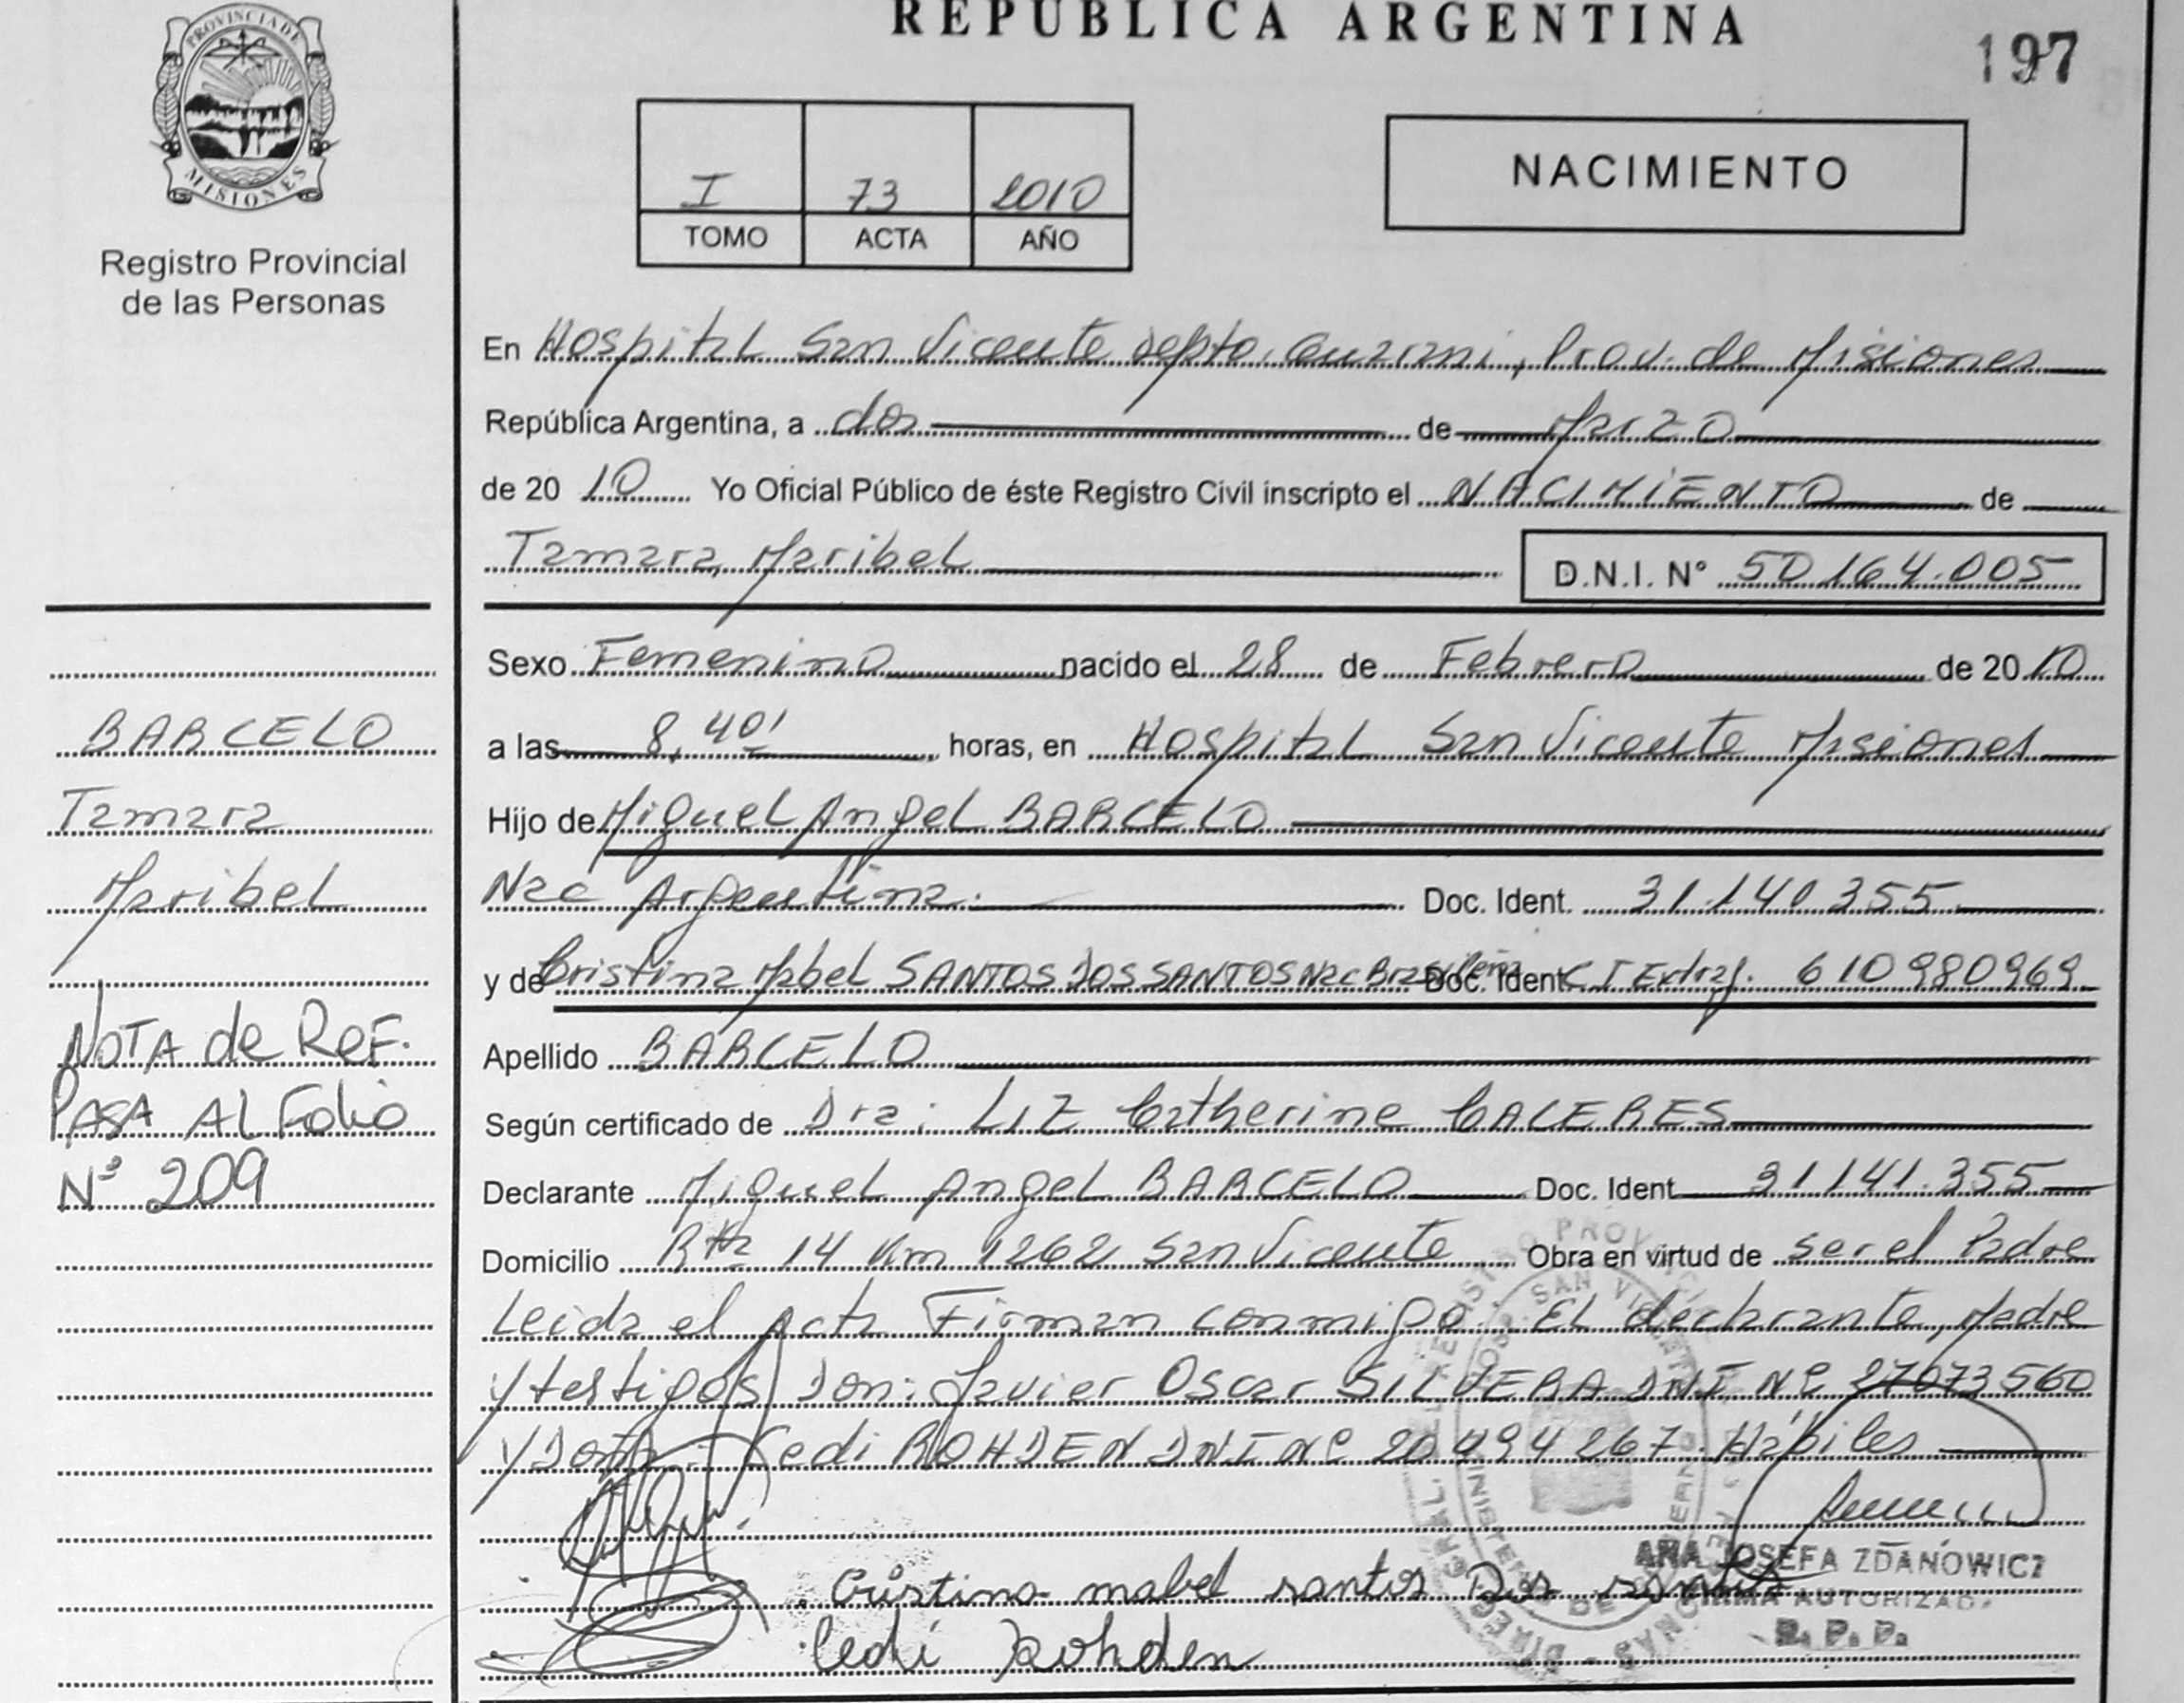 REPÚBLICA ARGENTINA
197
PROVINCIA DE
MISIONES
Registro Provincial
de las Personas
I 73 2010
TOMO ACTA AÑO
NACIMIENTO
En Hospital San Vicente Depto. Guarani, Prov. de Misiones
República Argentina, a dos de Marzo
de 20 10 Yo Oficial Público de éste Registro Civil inscripto el NACIMIENTO de
Tamara Maribel D.N.I. N° 50164.005
Sexo Femenino nacido el 28 de Febrero de 20 10
a las 8,40' horas, en Hospital San Vicente Misiones
Hijo de Miguel Angel BARCELO
Nac Argentina. Doc. Ident. 31.140.355
y de Cristina Mabel SANTOS DOS SANTOS Nac Brasileña Doc. Ident. C I Extraj. 610980969
Apellido BARCELO
Según certificado de Dra: LIZ Catherine CACERES
Declarante Miguel Angel BARCELO Doc. Ident 31141.355
Domicilio Rta 14 Km 1262 San Vicente Obra en virtud de ser el Padre
Leida el Acta Firman conmigo El declarante, Madre
y testigos Don: Javier Oscar SILVERA DNI Nº 27073560
y Doña: Cedi ROHDEN DNI Nº 20494267. Hábiles
Cristina mabel santos Dos santos
Cedi Rohden
ANA JOSEFA ZDANOWICZ
FIRMA AUTORIZADA
R. P. P.
BARCELO
Tamara
Maribel
NOTA de ReF.
PASA Al Folio
N° 209